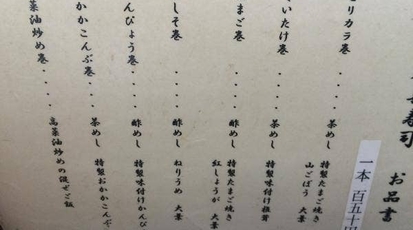 寿司 お品書
一本 百五十円
りカラ巻 ・・・・ 茶めし 特製たまご焼き 山ごぼう 大葉
いたけ巻 ・・・・ 茶めし 特製味付け椎茸
まご巻 ・・・・ 酢めし 特製たまご焼き 紅しょうが 大葉
しそ巻 ・・・・ 酢めし ねりうめ 大葉
んぴょう巻 ・・・・ 酢めし 特製味付けかんぴ
かかこんぶ巻 ・・・・ 茶めし 特製おかかこんぶ
菜油炒め巻 ・・・・ 高菜油炒めの混ぜご飯